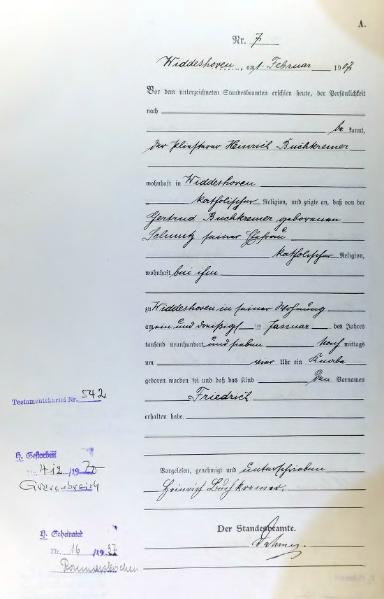 A.
Nr. 7
Widdeshoven, am 1 Februar 1907
Vor dem unterzeichneten Standesbeamten erschien heute, der Persönlichkeit
nach
be kannt,
der Heinrich Buchkremer
wohnhaft in Widdeshoven
katholischer Religion, und zeigte an, daß von der
Gertrud Buchkremer geborenen
Schmitz seiner Ehefrau
katholischer Religion,
wohnhaft bei ihm
zu Widdeshoven in seiner Wohnung
am ein und dreißigsten Januar des Jahres
tausend neunhundert und sieben Nach mittags
um Uhr ein Knabe
geboren worden sei und daß das Kind den Vornamen
Friedrich
erhalten habe.
Testamentskartei Nr. 542
Gestorben
Nr. 412/19
Grevenbroich
Vorgelesen, genehmigt und unterschrieben
Heinrich Buchkremer.
Der Standesbeamte.
Geheiratet
Nr. 16/1937
Rommerskirchen